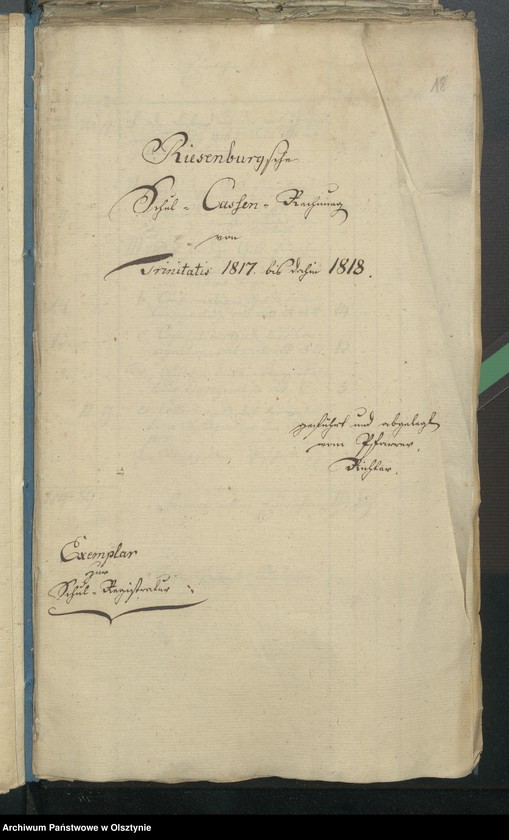 18
Riesenburgsche
Schul - Cassen - Rechnung
von
Trinitatis 1817. bis dahin 1818.
geführt und abgelegt
vom Pfarrer
Richter.
Exemplar
zur
Schul-Registratur
Archiwum Państwowe w Olsztynie